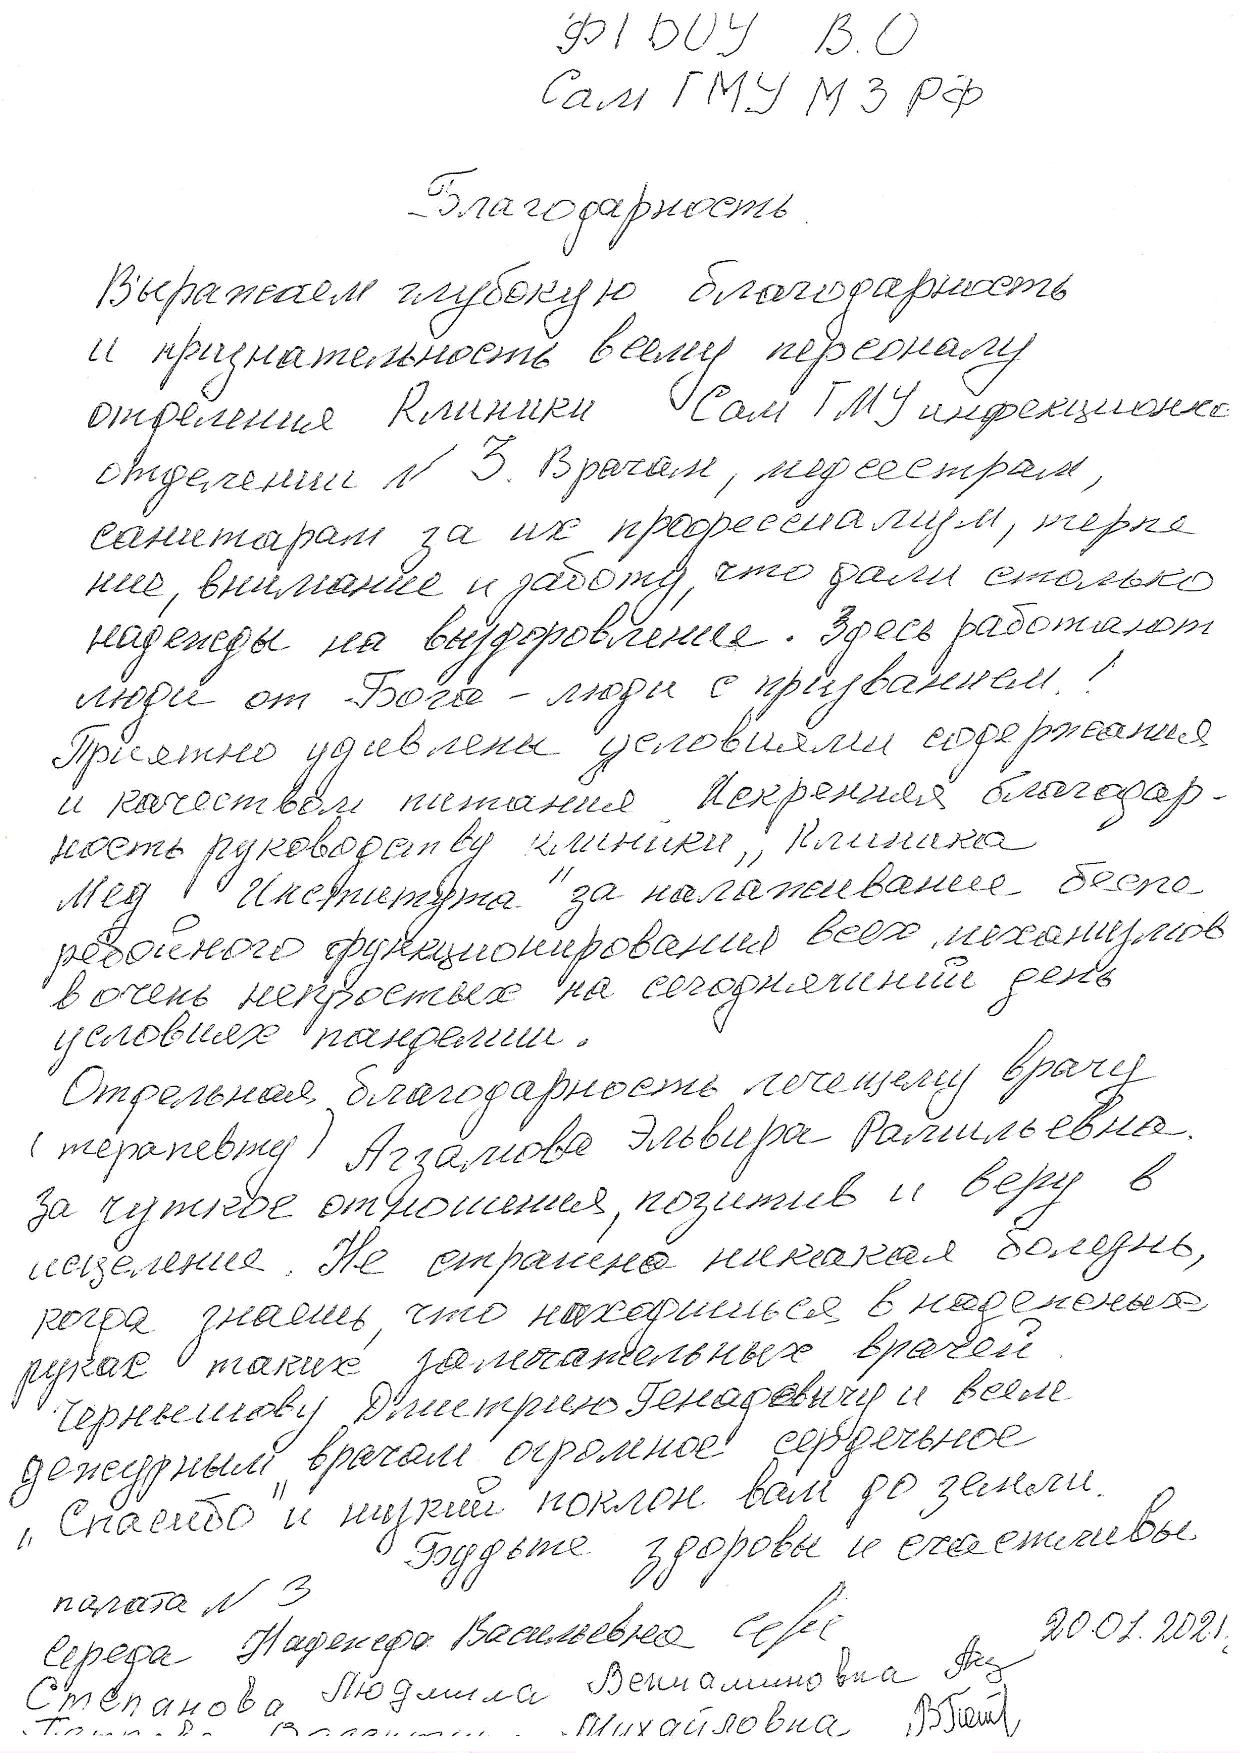 ФГБОУ В.О
Сам ГМУ МЗ РФ
Благодарность
Выражаем глубокую благодарность
и признательность всему персоналу
отделения Клиники СамГМУ инфекционно
отделении N 3. Врачам, медсестрам,
санитарам за их профессиализм, терпе
ние, внимание и заботу, что дали столько
надежды на выздоровление. Здесь работают
люди от Бога - люди с призванием!
Приятно удивлены условиями содержания
и качеством питания Искренняя благодар-
ность руководству клиники „Клиника
Мед Института" за налаживание беспе
ребойного функционирования всех механизмов
в очень непростых на сегодняшний день
условиях пандемии.
Отдельная благодарность лечещему врачу
(терапевту) Агзамова Эльвира Рамильевна.
За чуткое отношения, позитив и веру в
исцеление. Не страшна никакая болезнь,
когда знаешь, что находишься в надежных
руках таких замечательных врачей.
Чернышову Дмитрию Генадевичу и всем
дежурным врачам огромное сердечное
„Спасибо" и низкий поклон вам до земли.
Будьте здоровы и счастливы
палата N 3
Середа Надежда Васильевна
20.01.2021.
Степанова Людмила Вениаминовна
Михайловна